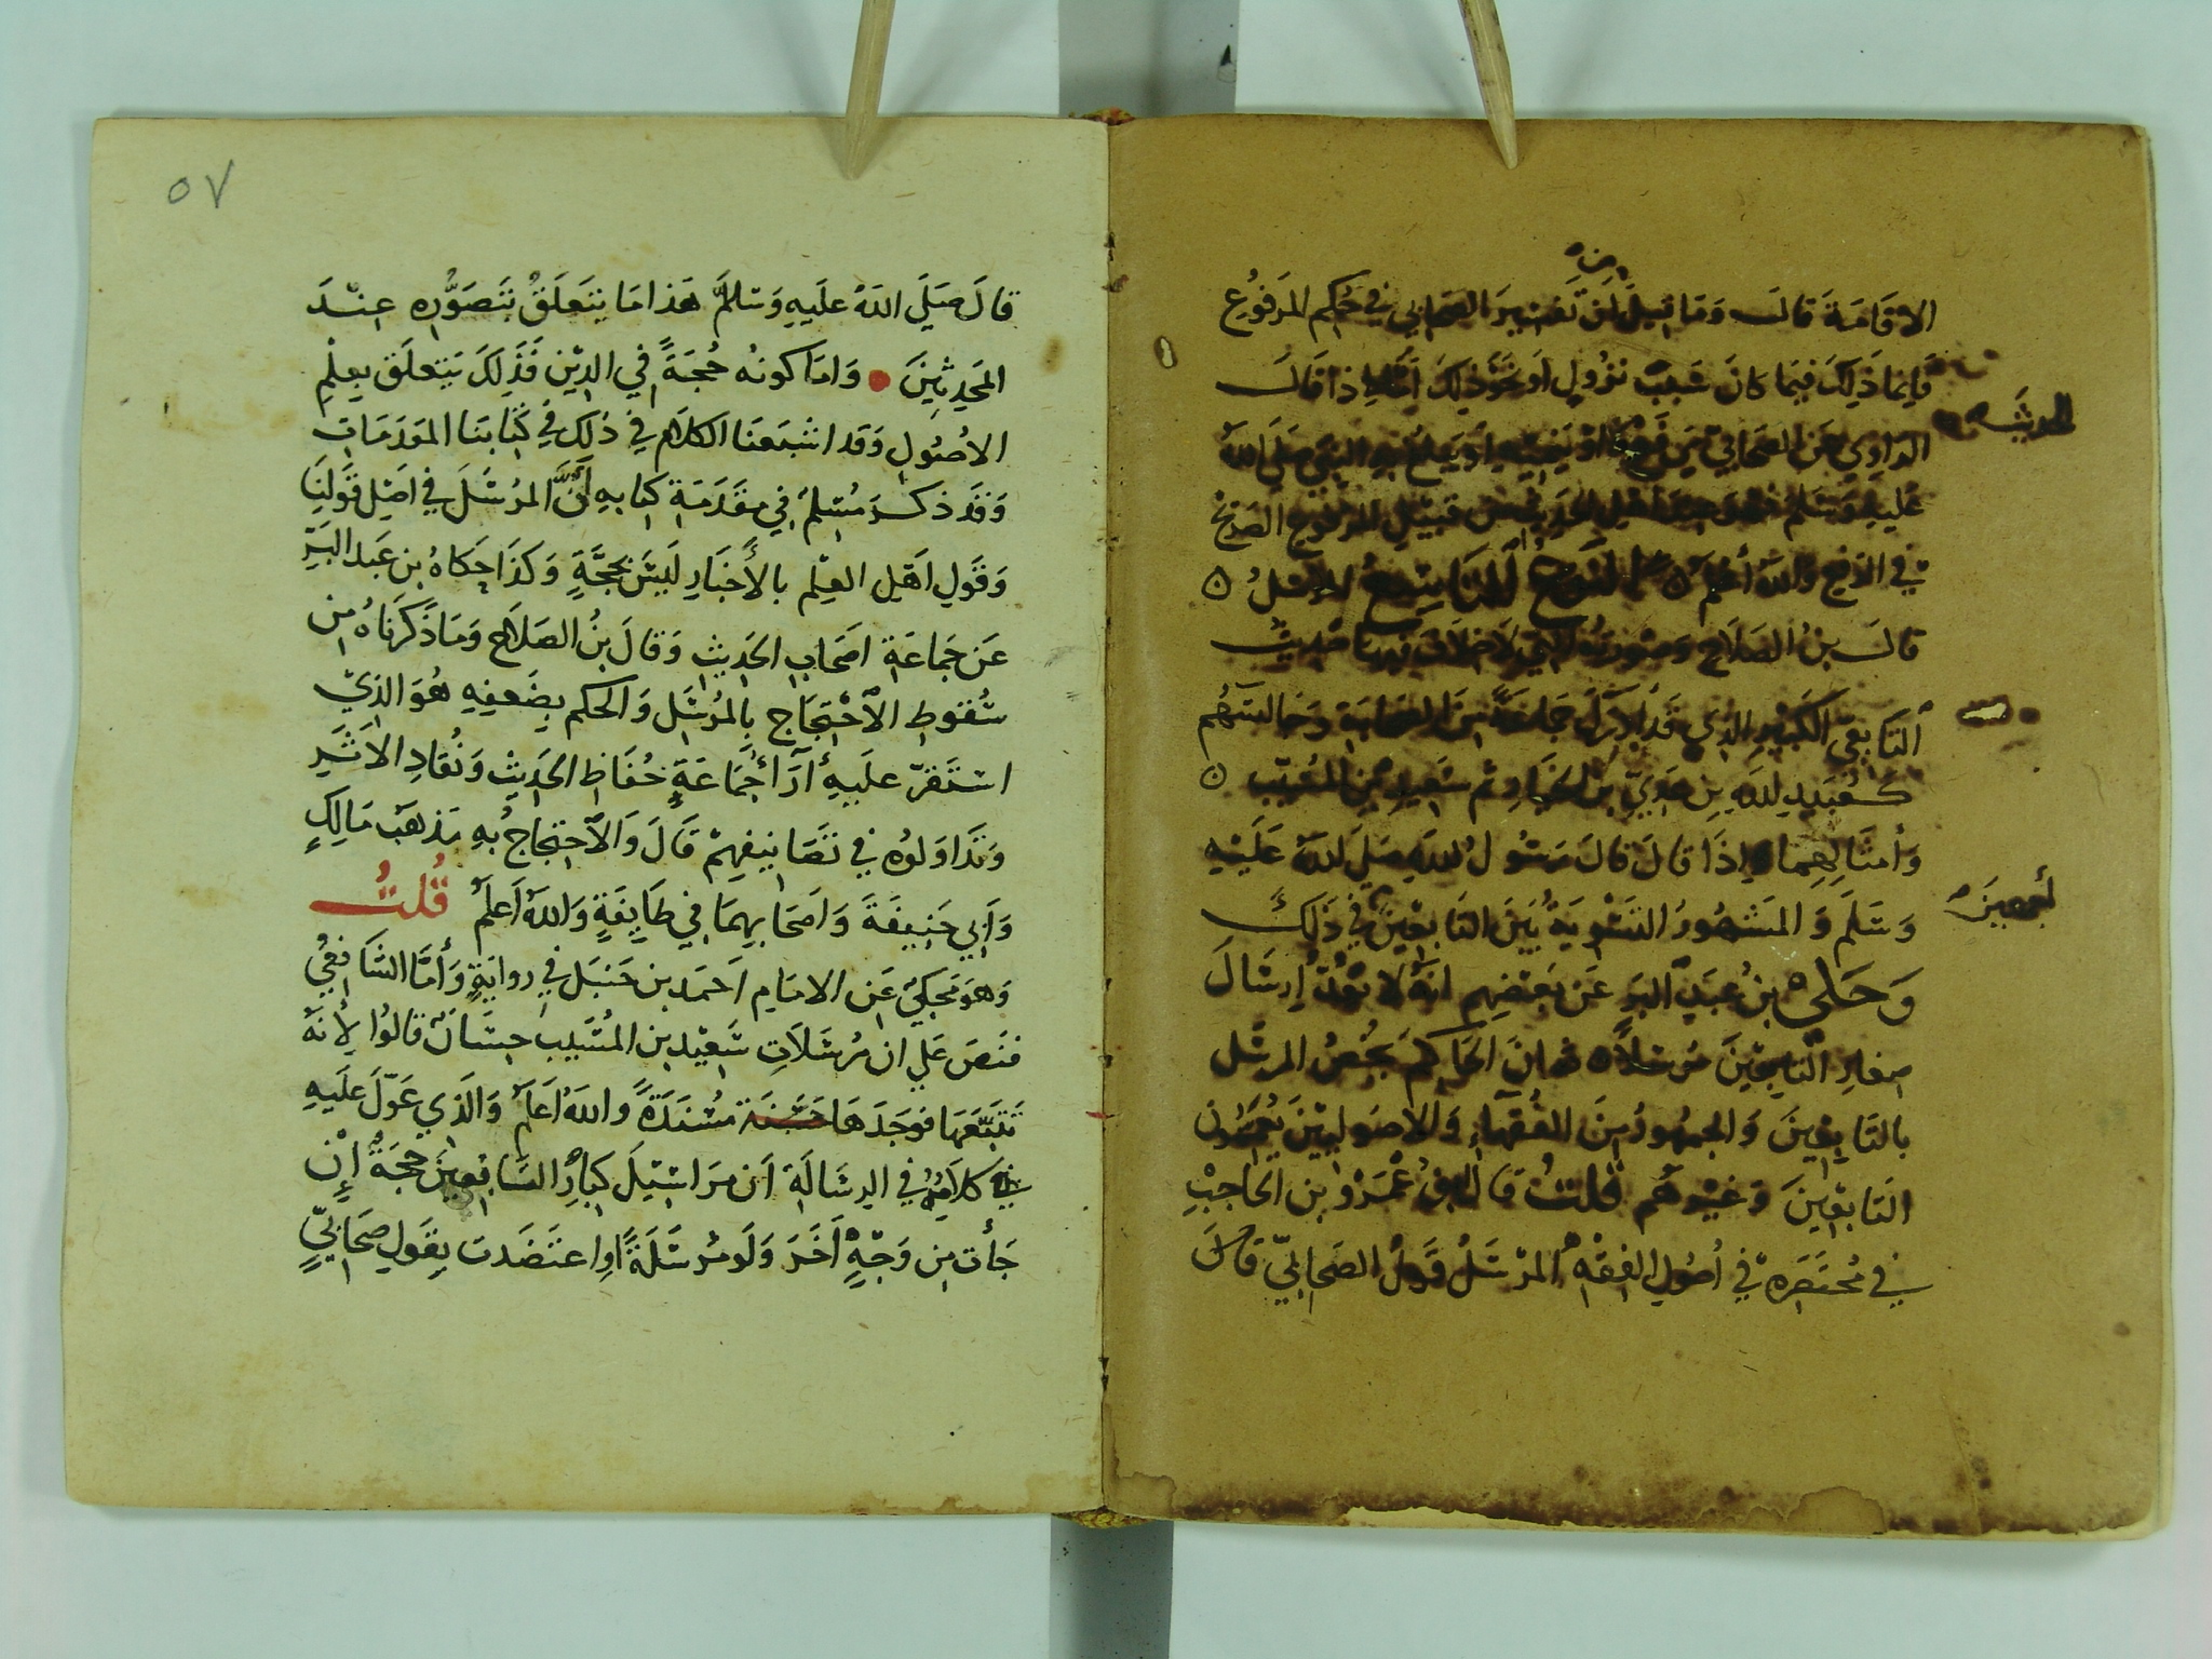 من
الاقامة قال وما قيل ان تفسير الصحابي في حكم المرفوع
فإنما ذلك فيما كان سبب نزول أو نحو ذلك أما إذا قال
الحديث
الراوي عن الصحابي يرفع الحديث أو ينميه أو يبلغ به النبي صلى الله
عليه وسلم فهو عند أهل الحديث من قبيل المرفوع الصريح
في الرفع والله أعلم ه النوع التاسع المرسل ه
قال بن الصلاح وصورته التي لا خلاف فيها حديث
التابعي الكبير الذي قد أدرك جماعة من الصحابة وجالسهم
كعبيد الله بن عدي بن الخيار ثم سعيد بن المسيب ه
وأمثالهما إذا قال قال رسول الله صلى الله عليه
أجمعين
وسلم والمشهور التسوية بين التابعين في ذلك
وحكى بن عبد البر عن بعضهم انه لا يعد إرسال
صغار التابعين مرسلا ه ثم ان الحاكم يخص المرسل
بالتابعين والجمهور من الفقهاء والاصوليين يعممون
التابعين وغيرهم قلت قال أبو عمرو بن الحاجب
في مختصره في أصول الفقه المرسل قول الصحابي قال
٥٧
قال صلى الله عليه وسلم هذا ما يتعلق بتصوره عند
المحدثين • واما كونه حجة في الدين فذلك يتعلق بعلم
الاصول وقد اشبعنا الكلام في ذلك في كتابنا المقدمات
وقد ذكر مسلم في مقدمة كتابه أن المرسل في اصل قولنا
وقول اهل العلم بالأخبار ليس بحجة وكذا حكاه بن عبد البر
عن جماعة اصحاب الحديث وقال بن الصلاح وما ذكرناه من
سقوط الاحتجاج بالمرسل والحكم بضعفه هو الذي
استقر عليه آرآ جماعة حفاظ الحديث ونقاد الاثر
وتداولوه في تصانيفهم قال والاحتجاج به مذهب مالك
وأبي حنيفة واصحابهما في طايفة والله أعلم قلت
وهو محكي عن الامام احمد بن حنبل في رواية وأما الشافعي
فنص على ان مرسلات سعيد بن المسيب حسان قالوا لأنه
تتبعها فوجدها حسنة مسندة والله أعلم والذي عول عليه
كلامه في الرسالة ان مراسيل كبار التابعين حجة إن
جأت من وجه آخر ولو مرسلة أو اعتضدت بقول صحابي